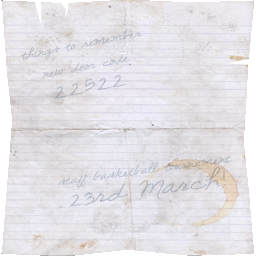 things to remember
new door code
22522
staff basketball tournament
23rd March